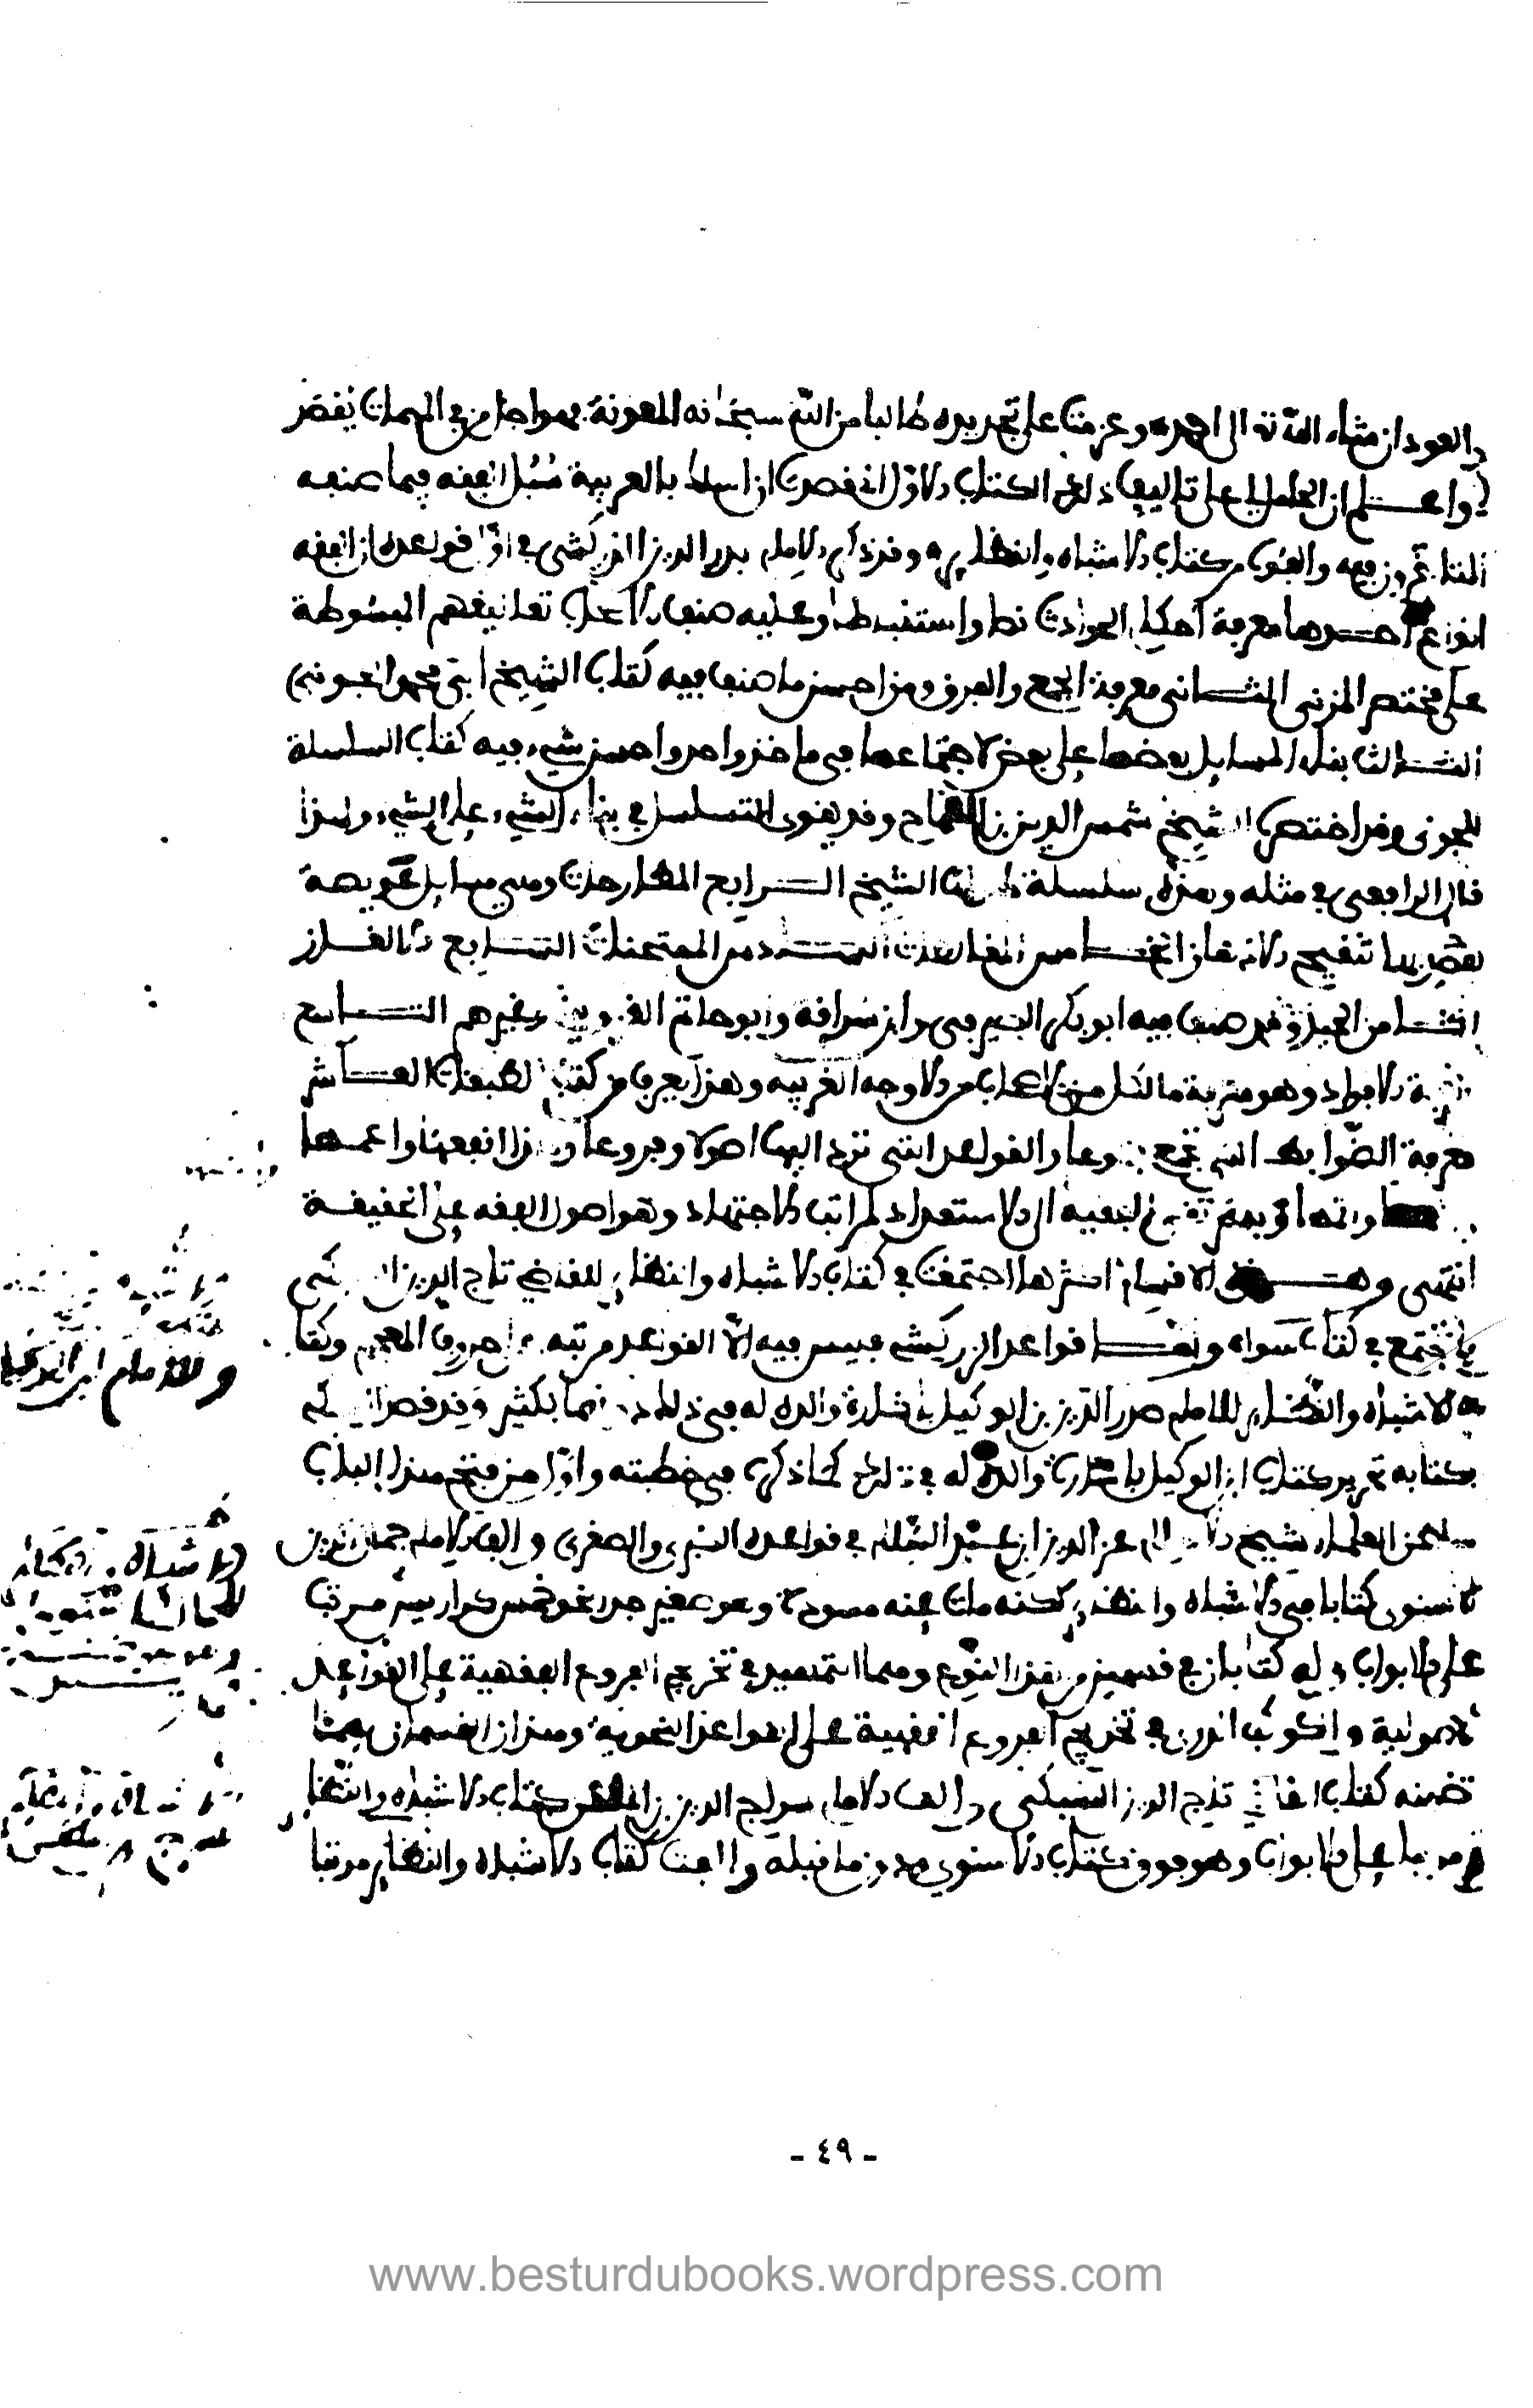 والعود ان شاء الله تعالى احمد وعزمت على تجديده طالبا من الله سبحانه المعونة فهو اجل من في المهمات يقصد
واعلم ان الحامل لي على تاليف ذلك الكتاب الاول اني قصدت ان اسلك بالعربية سبيل الفقه فيما صنفه
المتاخرون فيه والفوه من كتاب الاشباه والنظاير وقد ذكر الامام بدر الدين الزركشي في اول قواعده ان الفقه
انواع احدها معرفة احكام الحوادث نصا واستنباطا وعليه صنف الاصحاب تعاليقهم المبسوطة
على مختصر المزني الثاني معرفة الجمع والفرق ومن احسن ما صنف فيه كتاب الشيخ ابي محمد الجويني
الثالث بناء المسايل بعضها على بعض لاجتماعها في ماخذ واحد واحسن شيء فيه كتاب السلسلة
للجوني وقد اختصره الشيخ شمس الدين بن القماح وقد يقوى التسلسل في بناء الشيء على الشيء ولهذا
قال الرافعي في مثله وهذه سلسلة طولها الشيخ الرابع المطارحات وهي مسايل عويصة
يقصد بها تنقيح الاذهان الخامس المغالطات السادس الممتحنات السابع الالغاز
الثامن الحيل وقد صنف فيه ابو بكر الصيرفي وابن سراقة وابو حاتم القزويني وغيرهم التاسع
معرفة الافراد وهو معرفة ما لكل من الاصحاب من الاوجه الغريبة وهذا يعرف من كتب الطبقات العاشر
معرفة الضوابط التي تجمع جموعا والقواعد التي ترد اليها اصولا وفروعا وهذا انفعها واعمها
واتمها وبه يرتقي الفقيه الى الاستعداد لمراتب الاجتهاد وهو اصول الفقه على الحقيقة
انتهى وهذه الاقسام اكثرها اجتمعت في كتاب الاشباه والنظاير للقاضي تاج الدين السبكي
لم تجتمع في كتاب سواه واما قواعد الزركشي فليس فيه الا القواعد مرتبة على حروف المعجم وكتاب
الاشباه والنظاير للامام صدر الدين بن الوكيل دونهما بكثير وقد قصد السبكي
بكتابه تحرير كتاب ابن الوكيل باشارة والده له في ذلك كما ذكره في خطبته واول من فتح هذا الباب
سلطان العلماء شيخ الاسلام عز الدين ابن عبد السلام في قواعده الكبرى والصغرى والف الامام جمال الدين
الاسنوي كتابا في الاشباه والنظاير لكنه مات عنه مسودة وهو صغير جدا نحو خمس كراريس مرتبا
على الابواب وله كتابان في قسمين من هذا النوع وهما التمهيد في تخريج الفروع الفقهية على القواعد
الاصولية والكوكب الدري في تخريج الفروع الفقهية على القواعد النحوية وهذان القسمان مما
تضمنه كتاب القاضي تاج الدين السبكي والف الامام سراج الدين بن الملقن كتاب الاشباه والنظاير
مرتبا على الابواب وهو فوق كتاب الاسنوي ودون ما قبله والفت كتاب الاشباه والنظاير مرتبا
وللامام ابن الوكيل
- ٤٩ -
www.besturdubooks.wordpress.com